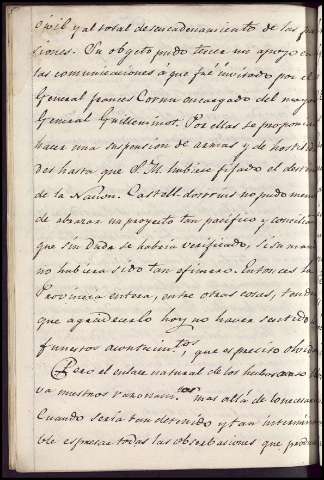 civil y al total desencadenamiento de las
siones. Su objeto pudo tener un apoyo en
las comunicaciones á que fué invitado por el
General frances Cornu encargado del mayor
General Guilleminot. Por ellas se proponia
hacer una suspension de armas y de hostilida
des hasta que S. M. hubiese fijado el destino
de la Nacion. Castell-dosrius no pudo menos
de abrazar un proyecto tan pacifico y concilia
que sin duda se habria verificado, si su mando
no hubiera sido tan efimero. Entonces la
Provincia entera, entre otras cosas, tendria
que agradecerlo hoy no haver sentido
funestos acontecim.tos que es preciso olvidar
Pero el enlace natural de los hechos
va nuestros razonam.tos mas allá de lo necesario
Cuando seria tan detenido y tan intermina
ble espresar todas las observasiones que